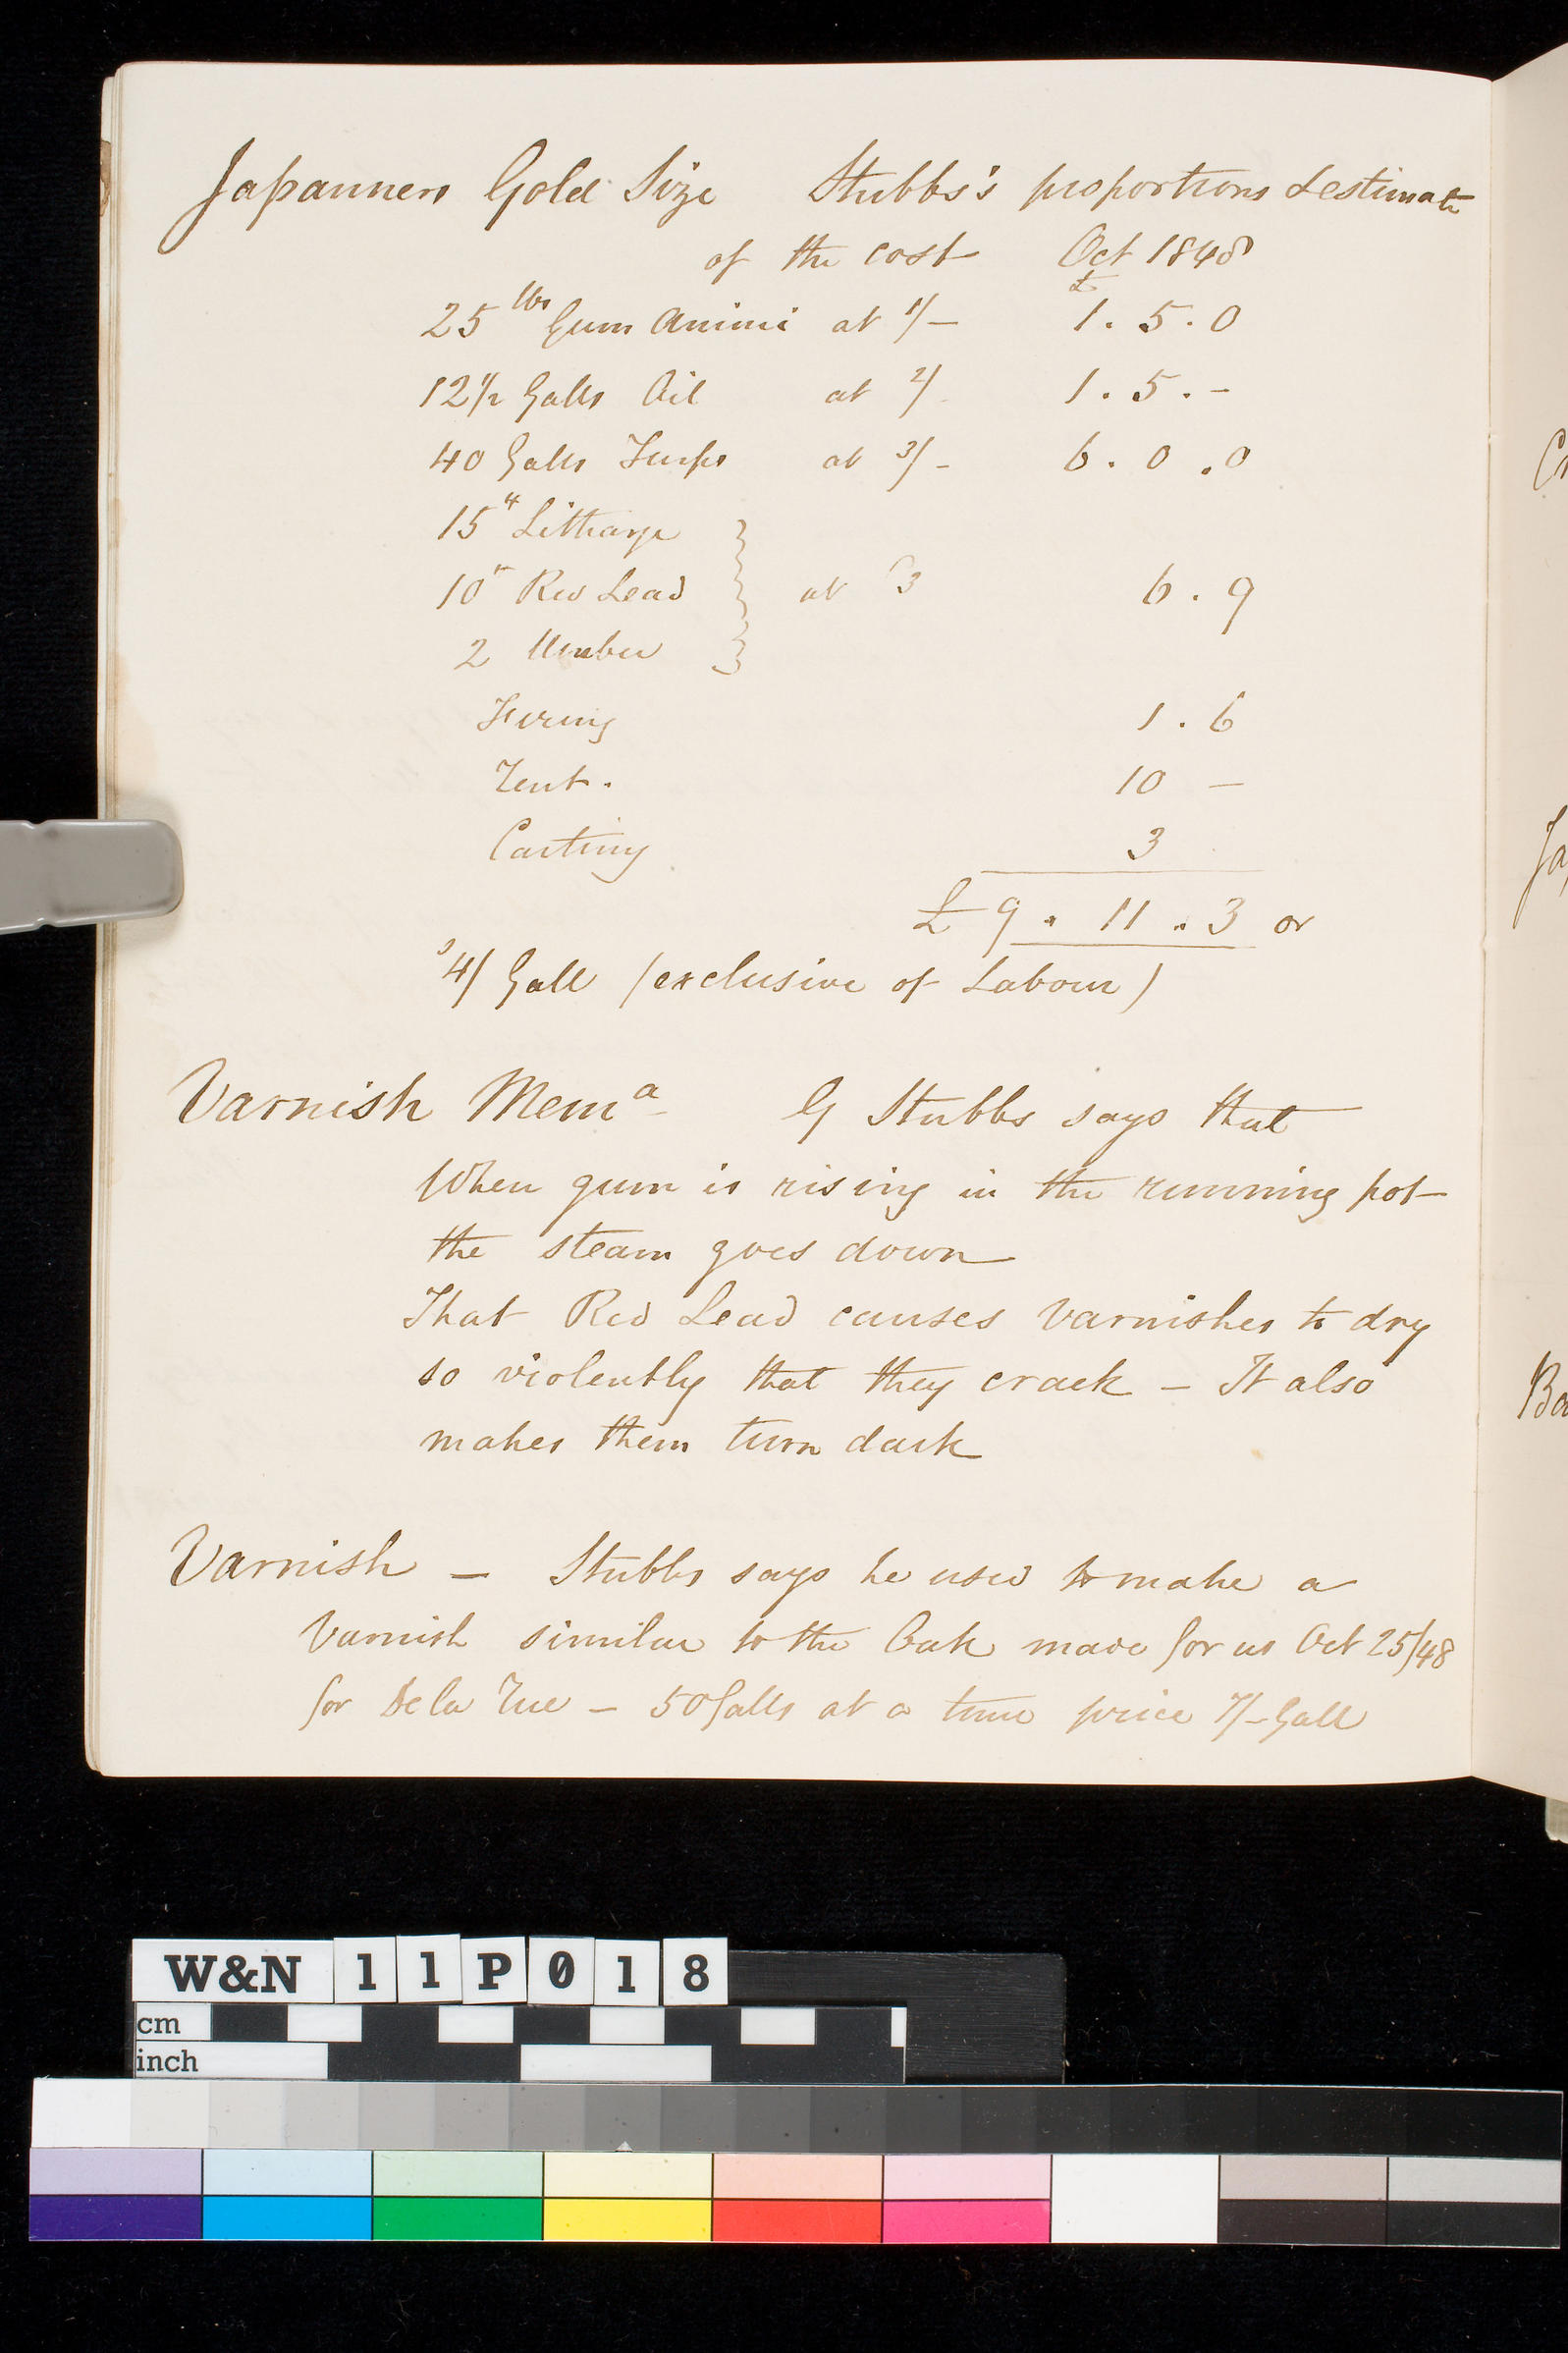 Japanners Gold Size Stubbs's proportions & estimate
of the cost Oct 1848
£
25 lbs Gum Animi at 1/- 1 . 5 . 0
12½ Galls Oil at 2/ 1 . 5 . -
40 Galls Turps at 3/- 6 . 0 . 0
15 " Litharge
10 " Red Lead } at 3 6 . 9
2 Umber
Firing 1 . 6
Rent . 10 -
Carting 3
£ 9 . 11 . 3 or
4/ Gall (exclusive of Labour)
Varnish Mema G Stubbs says that
When gum is rising in the running pot
the steam goes down
That Red Lead causes varnishes to dry
so violently that they crack - It also
makes them turn dark
Varnish - Stubbs says he used to make a
Varnish similar to the Oak made for us Oct 25/48
for De la Rue - 50 Galls at a time price 7/- Gall
Ja
Ba
W&N 11P018
cm
inch